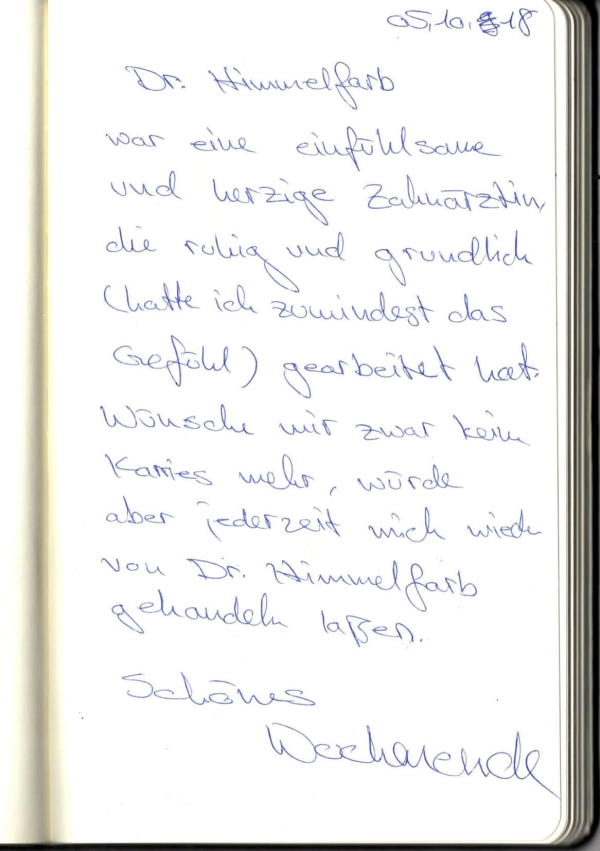 05.10.18
Dr. Himmelfarb
war eine einfühlsame
und herzige Zahnärztin,
die ruhig und gründlich
(hatte ich zumindest das
Gefühl) gearbeitet hat.
Wünsche mir zwar kein
Karries mehr, würde
aber jederzeit mich wieder
von Dr. Himmelfarb
gehandeln laßen.
Schönes
Wochenende